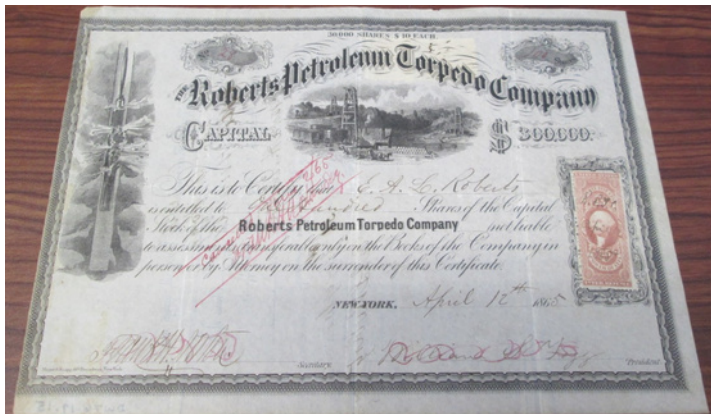 30,000 SHARES $10 EACH.
THE
Roberts Petroleum Torpedo Company
CAPITAL $300,000.
This is to Certify that E. A. L. Roberts
is entitled to Hundred Shares of the Capital
Stock of the Roberts Petroleum Torpedo Company not liable
to assessment, transferable only on the Books of the Company in
person or by Attorney on the surrender of this Certificate.
NEW YORK, April 12th 1865
Secretary. President